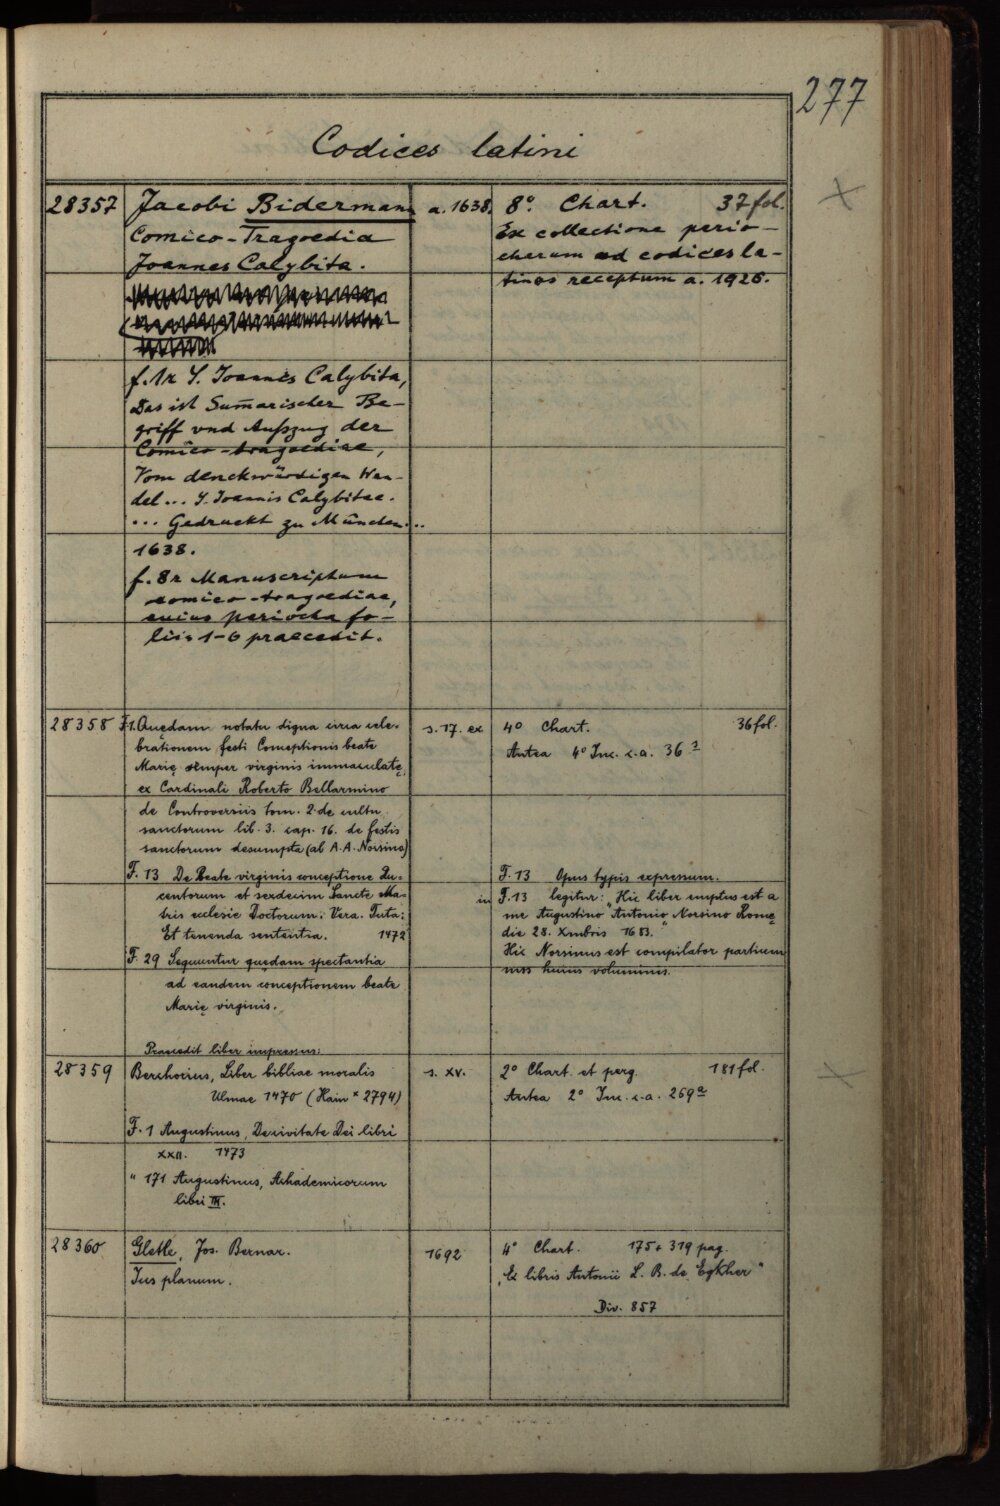 277
Codices latini
28357 Jacobi Bidermann a. 1638. 8º. Chart. 37 fol.
Comico-Tragoedia
Joannes Calybita.
Ex collectione perio-
charum ad codices la-
tinos receptum a. 1926.
f. 1r S. Joannis Calybita,
Das ist Sum̄arischer Be-
griff vnd Auszug der
Comico-tragoediae,
Vom denckwürdigen Wan-
del ... S. Joannis Calybitae.
... Gedruckt zu München...
1638.
f. 8r Manuscriptum
comico-tragoediae,
cuius periocha fo-
liis 1-6 praecedit.
28358 F. 1. Quędam notatu digna circa cele-
brationem festi Conceptionis beate
Marię semper virginis immaculatę,
ex Cardinali Roberto Bellarmino
de Controversiis tom. 2. de cultu
sanctorum lib. 3. cap. 16. de festis
sanctorum desumpta (ab A. A. Norsino)
s. 17. ex 4º Chart. 36 fol.
Antea 4º Inc. c. a. 36
F. 13 De Beate virginis conceptione Du-
centorum et sexdecim Sancte Ma-
tris ecclesie Doctorum: Vera. Tuta:
Et tenenda sententia. 1472
F. 13 Opus typis expressum.
in F. 13 legitur: „Hic liber emptus est a
me Augustino Antonio Norsino Romę
die 28. Xmbris 1683."
Hic Norsinus est compilator partium
mss huius voluminis.
F. 29 Sequuntur quędam spectantia
ad eandem conceptionem beate
Marię virginis.
Praecedit liber impressus:
28359 Berchorius, Liber bibliae moralis s. XV. 2º Chart. et perg. 181 fol.
Ulmae 1470 (Hain * 2794) Antea 2º Inc. c. a. 269ª
F. 1 Augustinus, De civitate Dei libri
XXII. 1473
" 171 Augustinus, Achademicorum
libri III.
28360 Gletle, Jos. Bernar. 1692 4º Chart. 175 + 319 pag.
Ius planum. „Ex libris Antonii L. B. de Egkher"
Div. 857